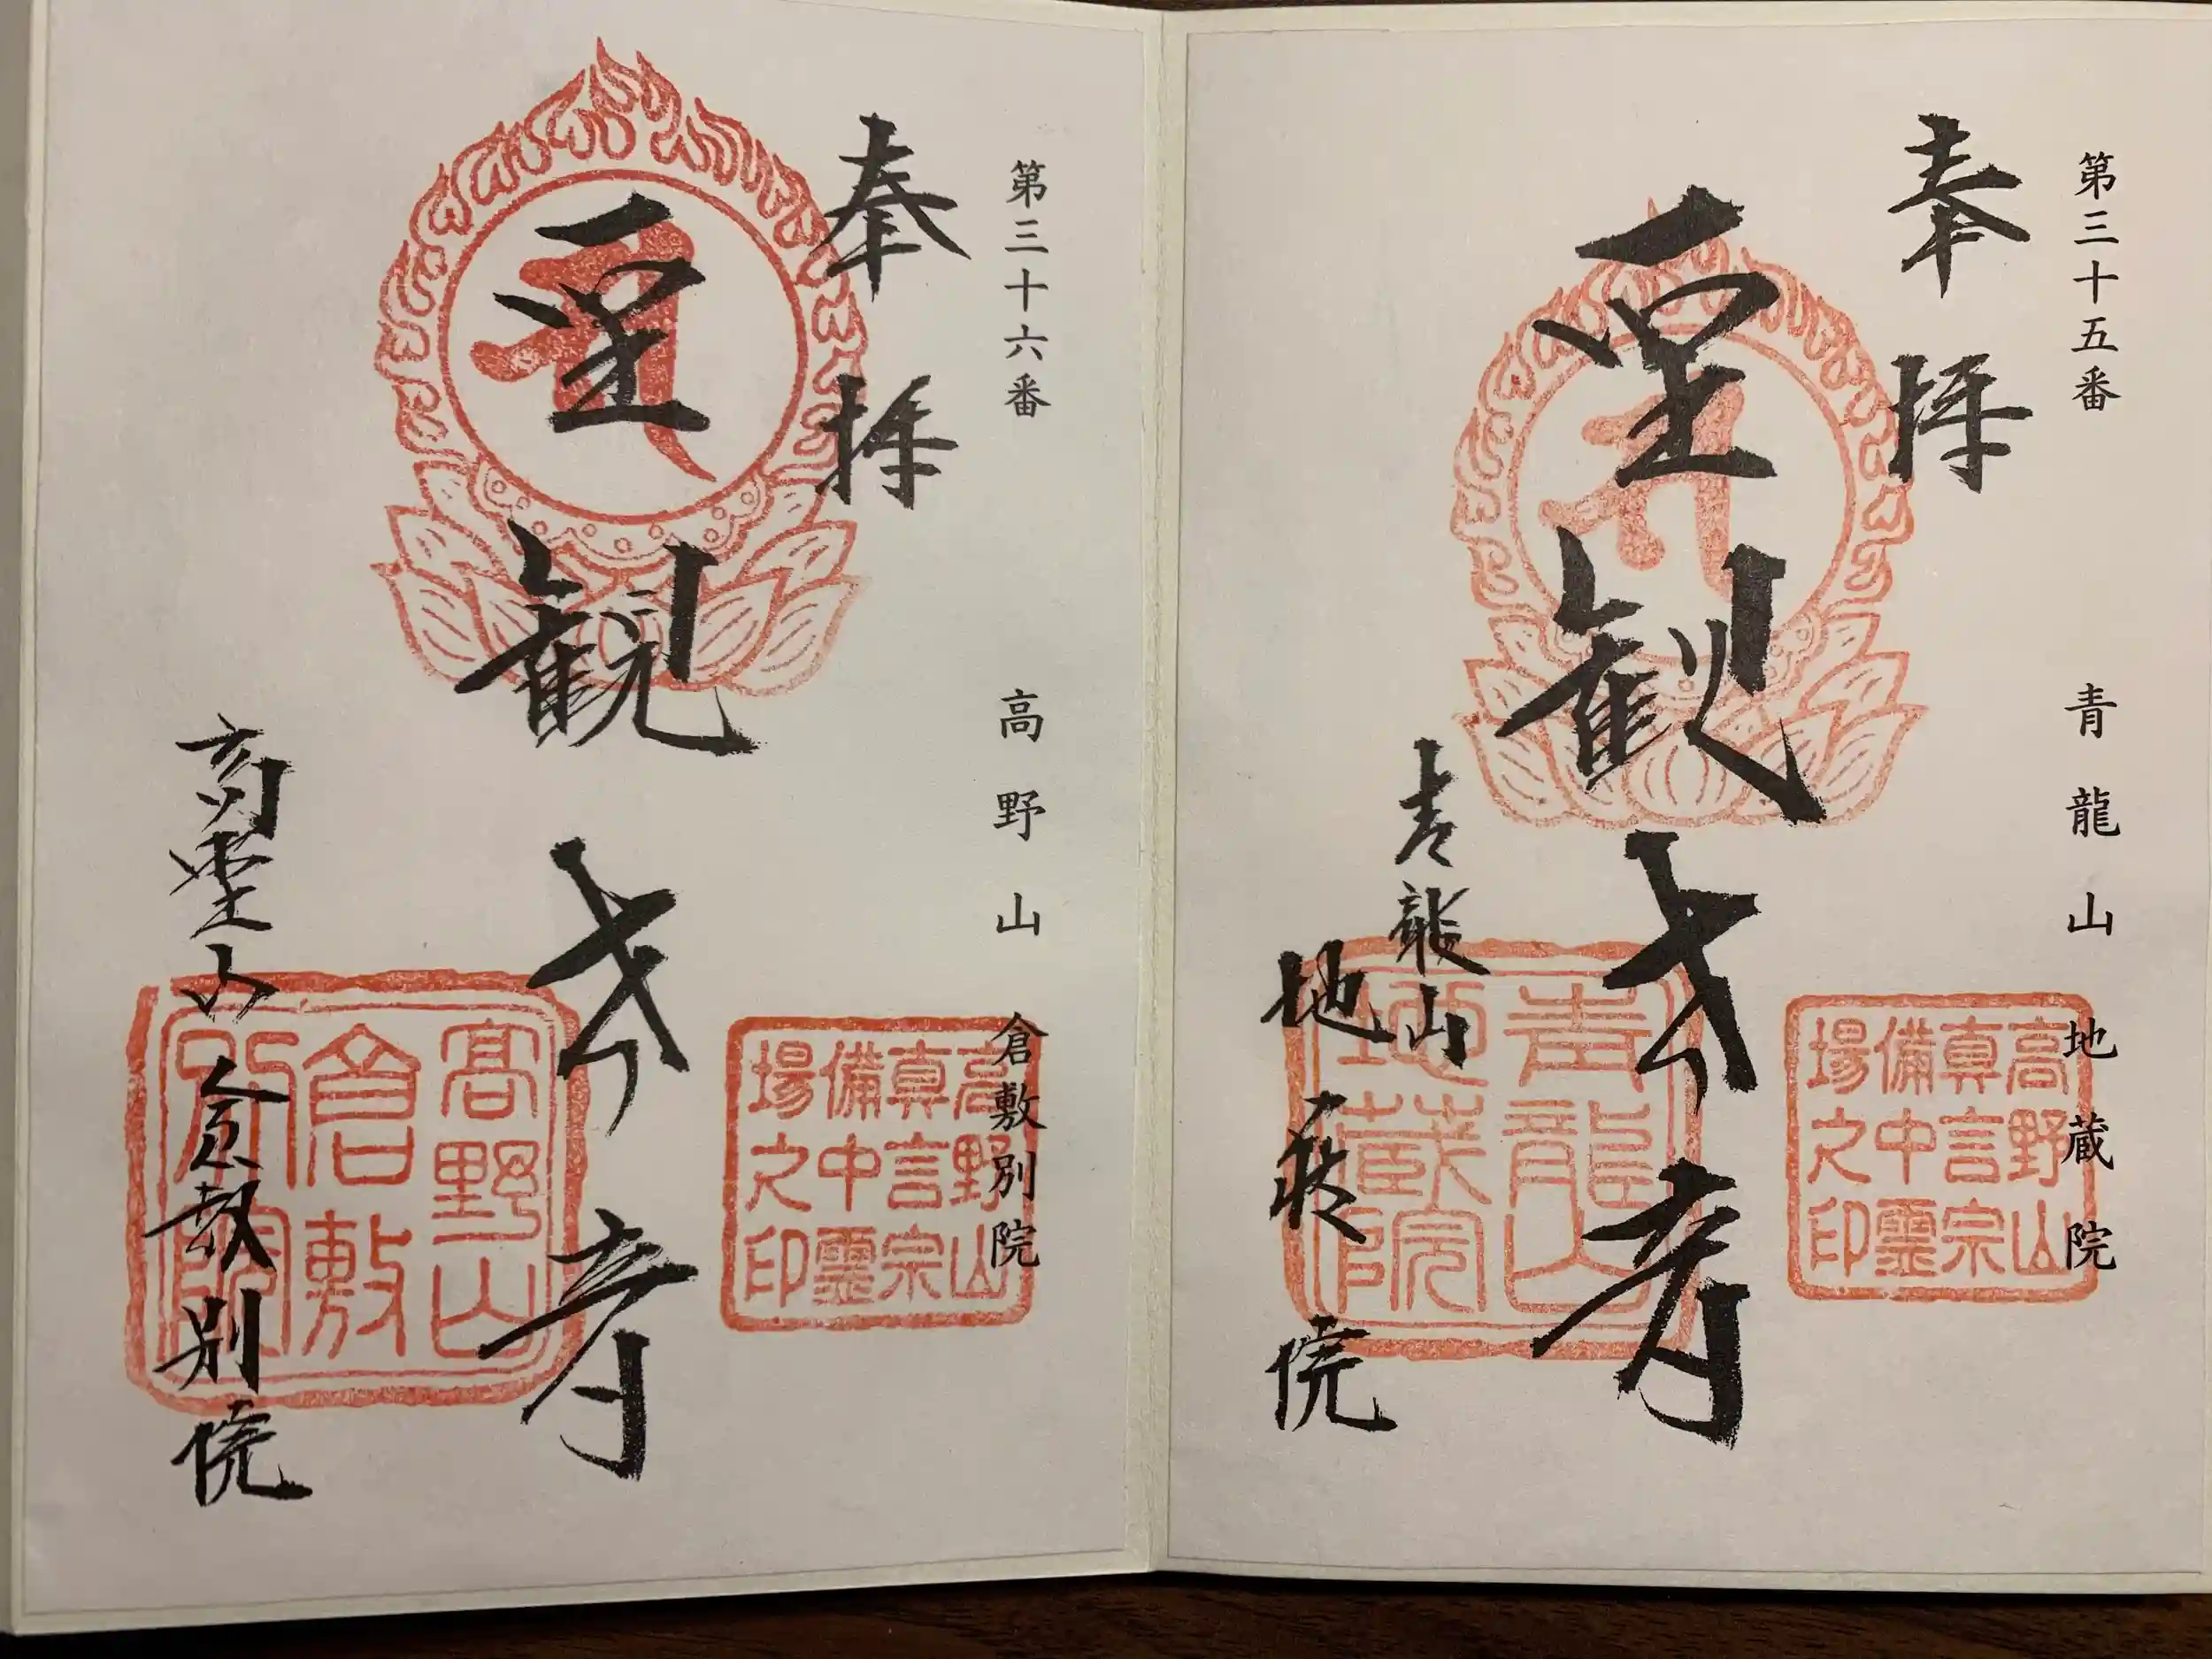 第三十五番
青龍山 地蔵院
奉拝
聖観世音
青龍山
地蔵院
高野山
真言宗
備中霊
場之印
青龍山
地蔵院
第三十六番
高野山 倉敷別院
奉拝
聖観世音
高野山 倉敷別院
高野山
真言宗
備中霊
場之印
高野山
倉敷
別院